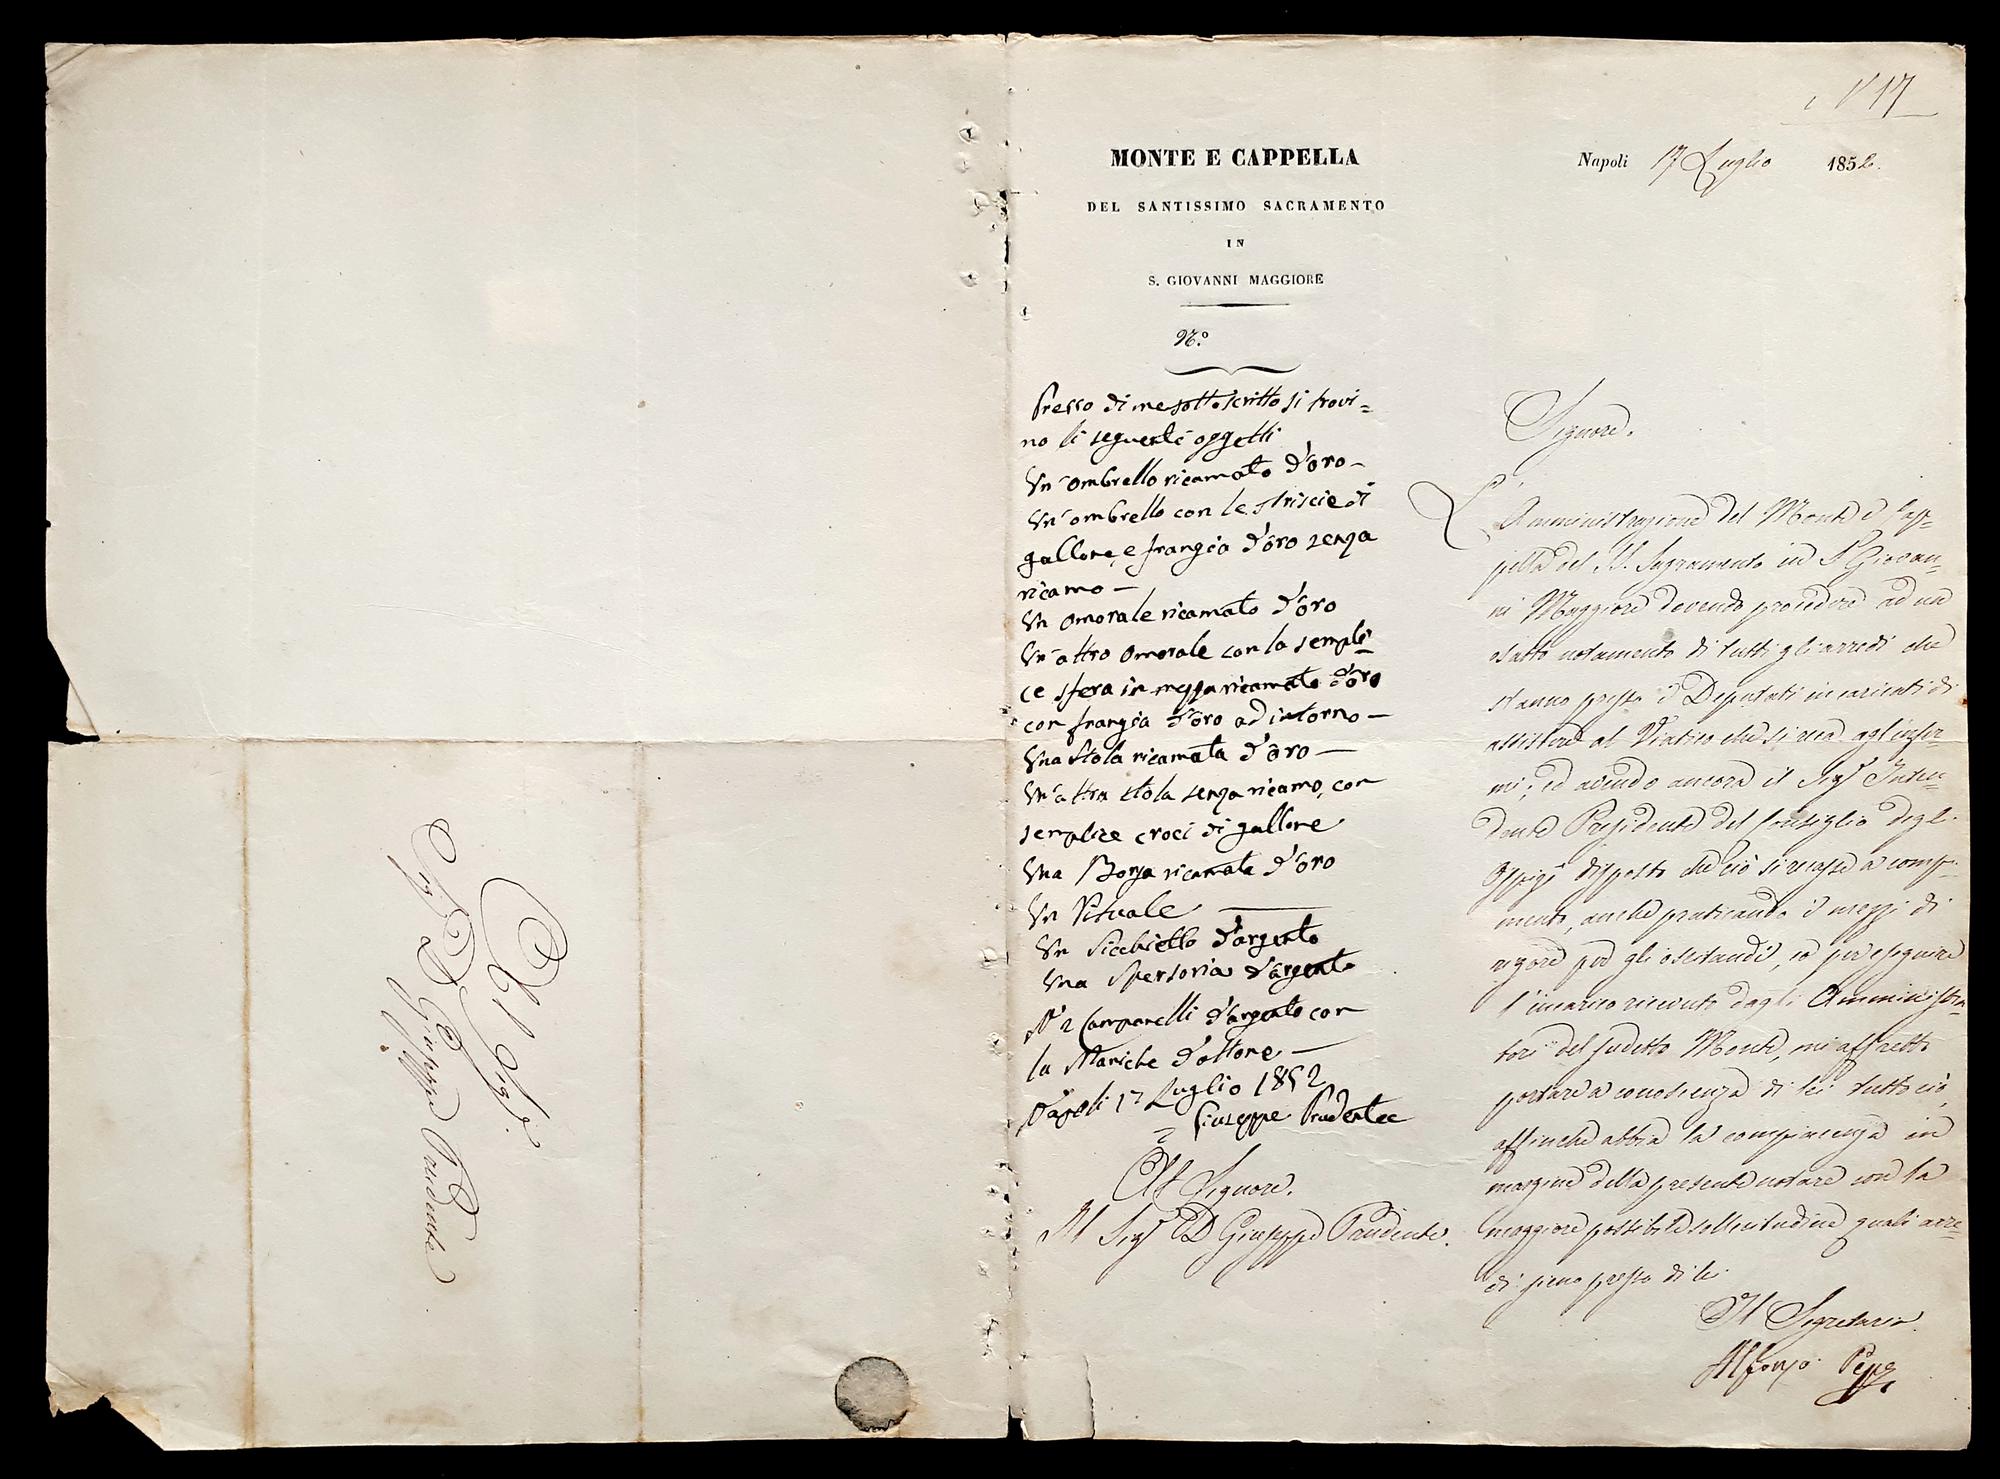 N 17
MONTE E CAPPELLA
DEL SANTISSIMO SACRAMENTO
IN
S. GIOVANNI MAGGIORE
N.º
Napoli 17 Luglio 1852.
Presso di me sottoscritto si trovi=
no li seguenti oggetti
Un'ombrello ricamato d'oro—
Un'ombrello con le striscie di
gallone, e frangia d'oro senza
ricamo—
Un omerale ricamato d'oro
Un'altro omerale con la sempli=
ce sfera in mezzo ricamata d'oro
con frangia d'oro ad intorno—
Una stola ricamata d'oro—
Un'altra stola senza ricamo, con
semplice croci di gallone
Una Borza ricamata d'oro
Un Rituale —
Un Sicchietto d'argento
Una spersoria d'argento
N° 2 Campanelli d'argento con
la Maniche d'ottone—
Napoli 17 Luglio 1852
Giuseppe Prudente
Al Signore.
Il Sig.r D Giuseppe Prudente.
Signore.
L'Amministrazione del Monte e Cap=
pella del SS. Sagramento in S. Giovan=
ni Maggiore dovendo procedere ad un
esatto notamento di tutti gli arredi che
stanno presso i Deputati incaricati di
assistere al Viatico che si reca agl'infer=
mi; ed avendo ancora il Sig.r Inten=
dente Presidente del Consiglio degl.
Ospizi disposto che ciò si recasse a comp=
mento, anche praticando i mezzi di
rigore per gli ostandi, io per eseguire
l'incarico ricevuto dagli Amministra=
tori del sudetto Monte, mi affretto
portare a conoscenza di lei tutto ciò,
affinche abbia la compiacenza in
margine della presente notare con la
maggiore possibile sollecitudine quali arre=
di sieno presso di lei.
Il Segretario
Alfonzo Pepe
Al Sig.r
Sig. D. Giuseppe Prudente